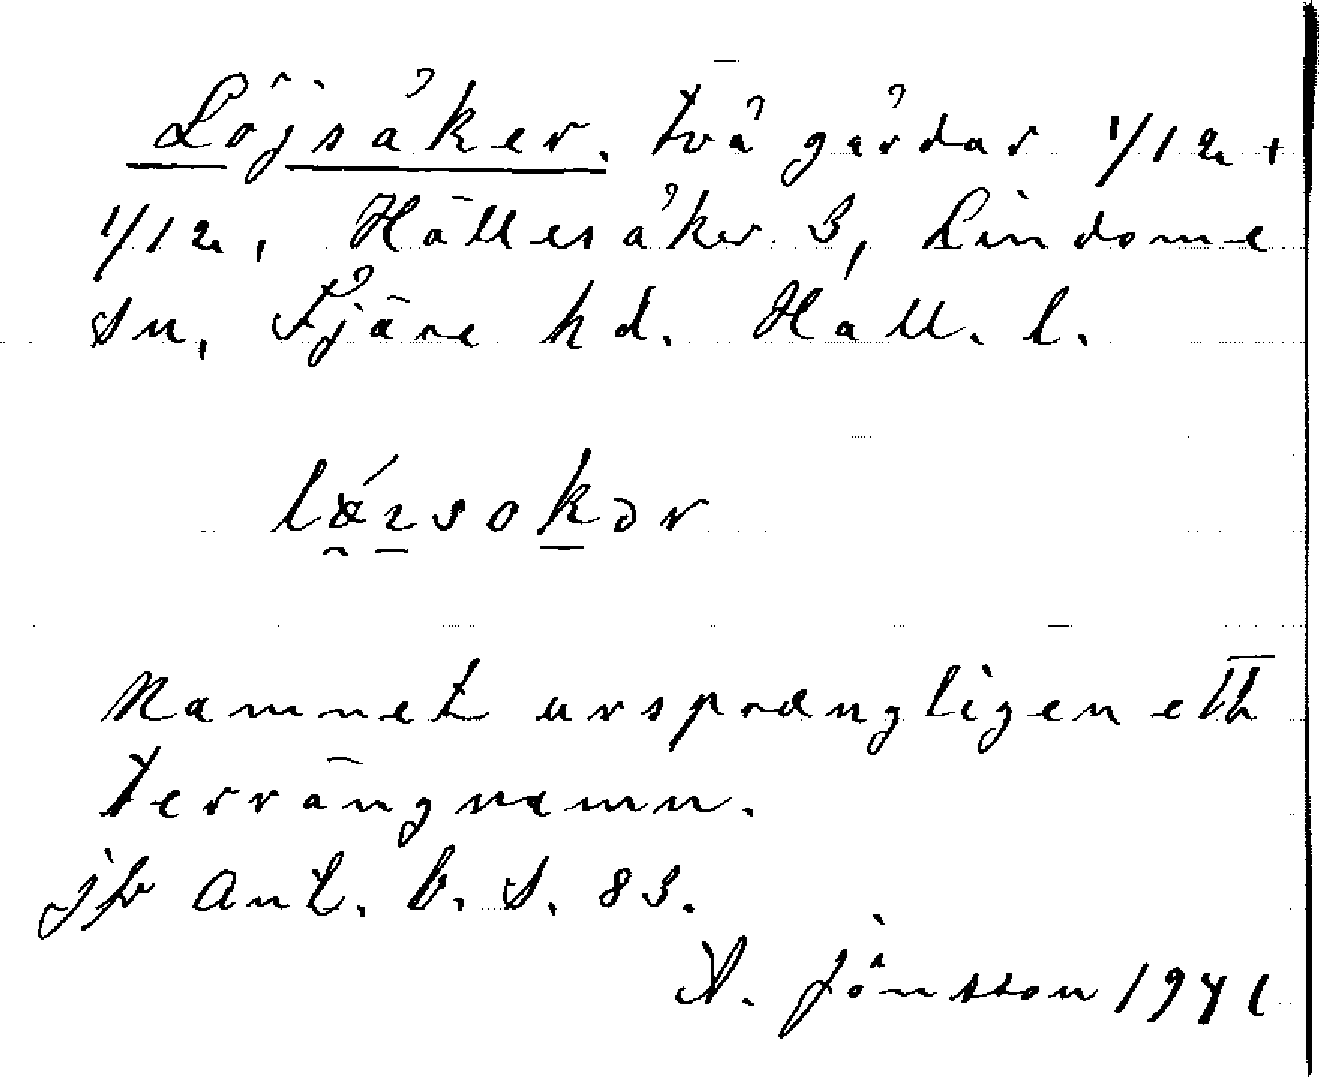 Löjsåker. två gårdar 1/12 +
1/12, Hällesåker 3, Lindome
sn, Fjäre hd. Hall. l.
Namnet ursprungligen ett
terrängnamn.
jfr Ant. b. S. 83.
A. Jönsson 1941